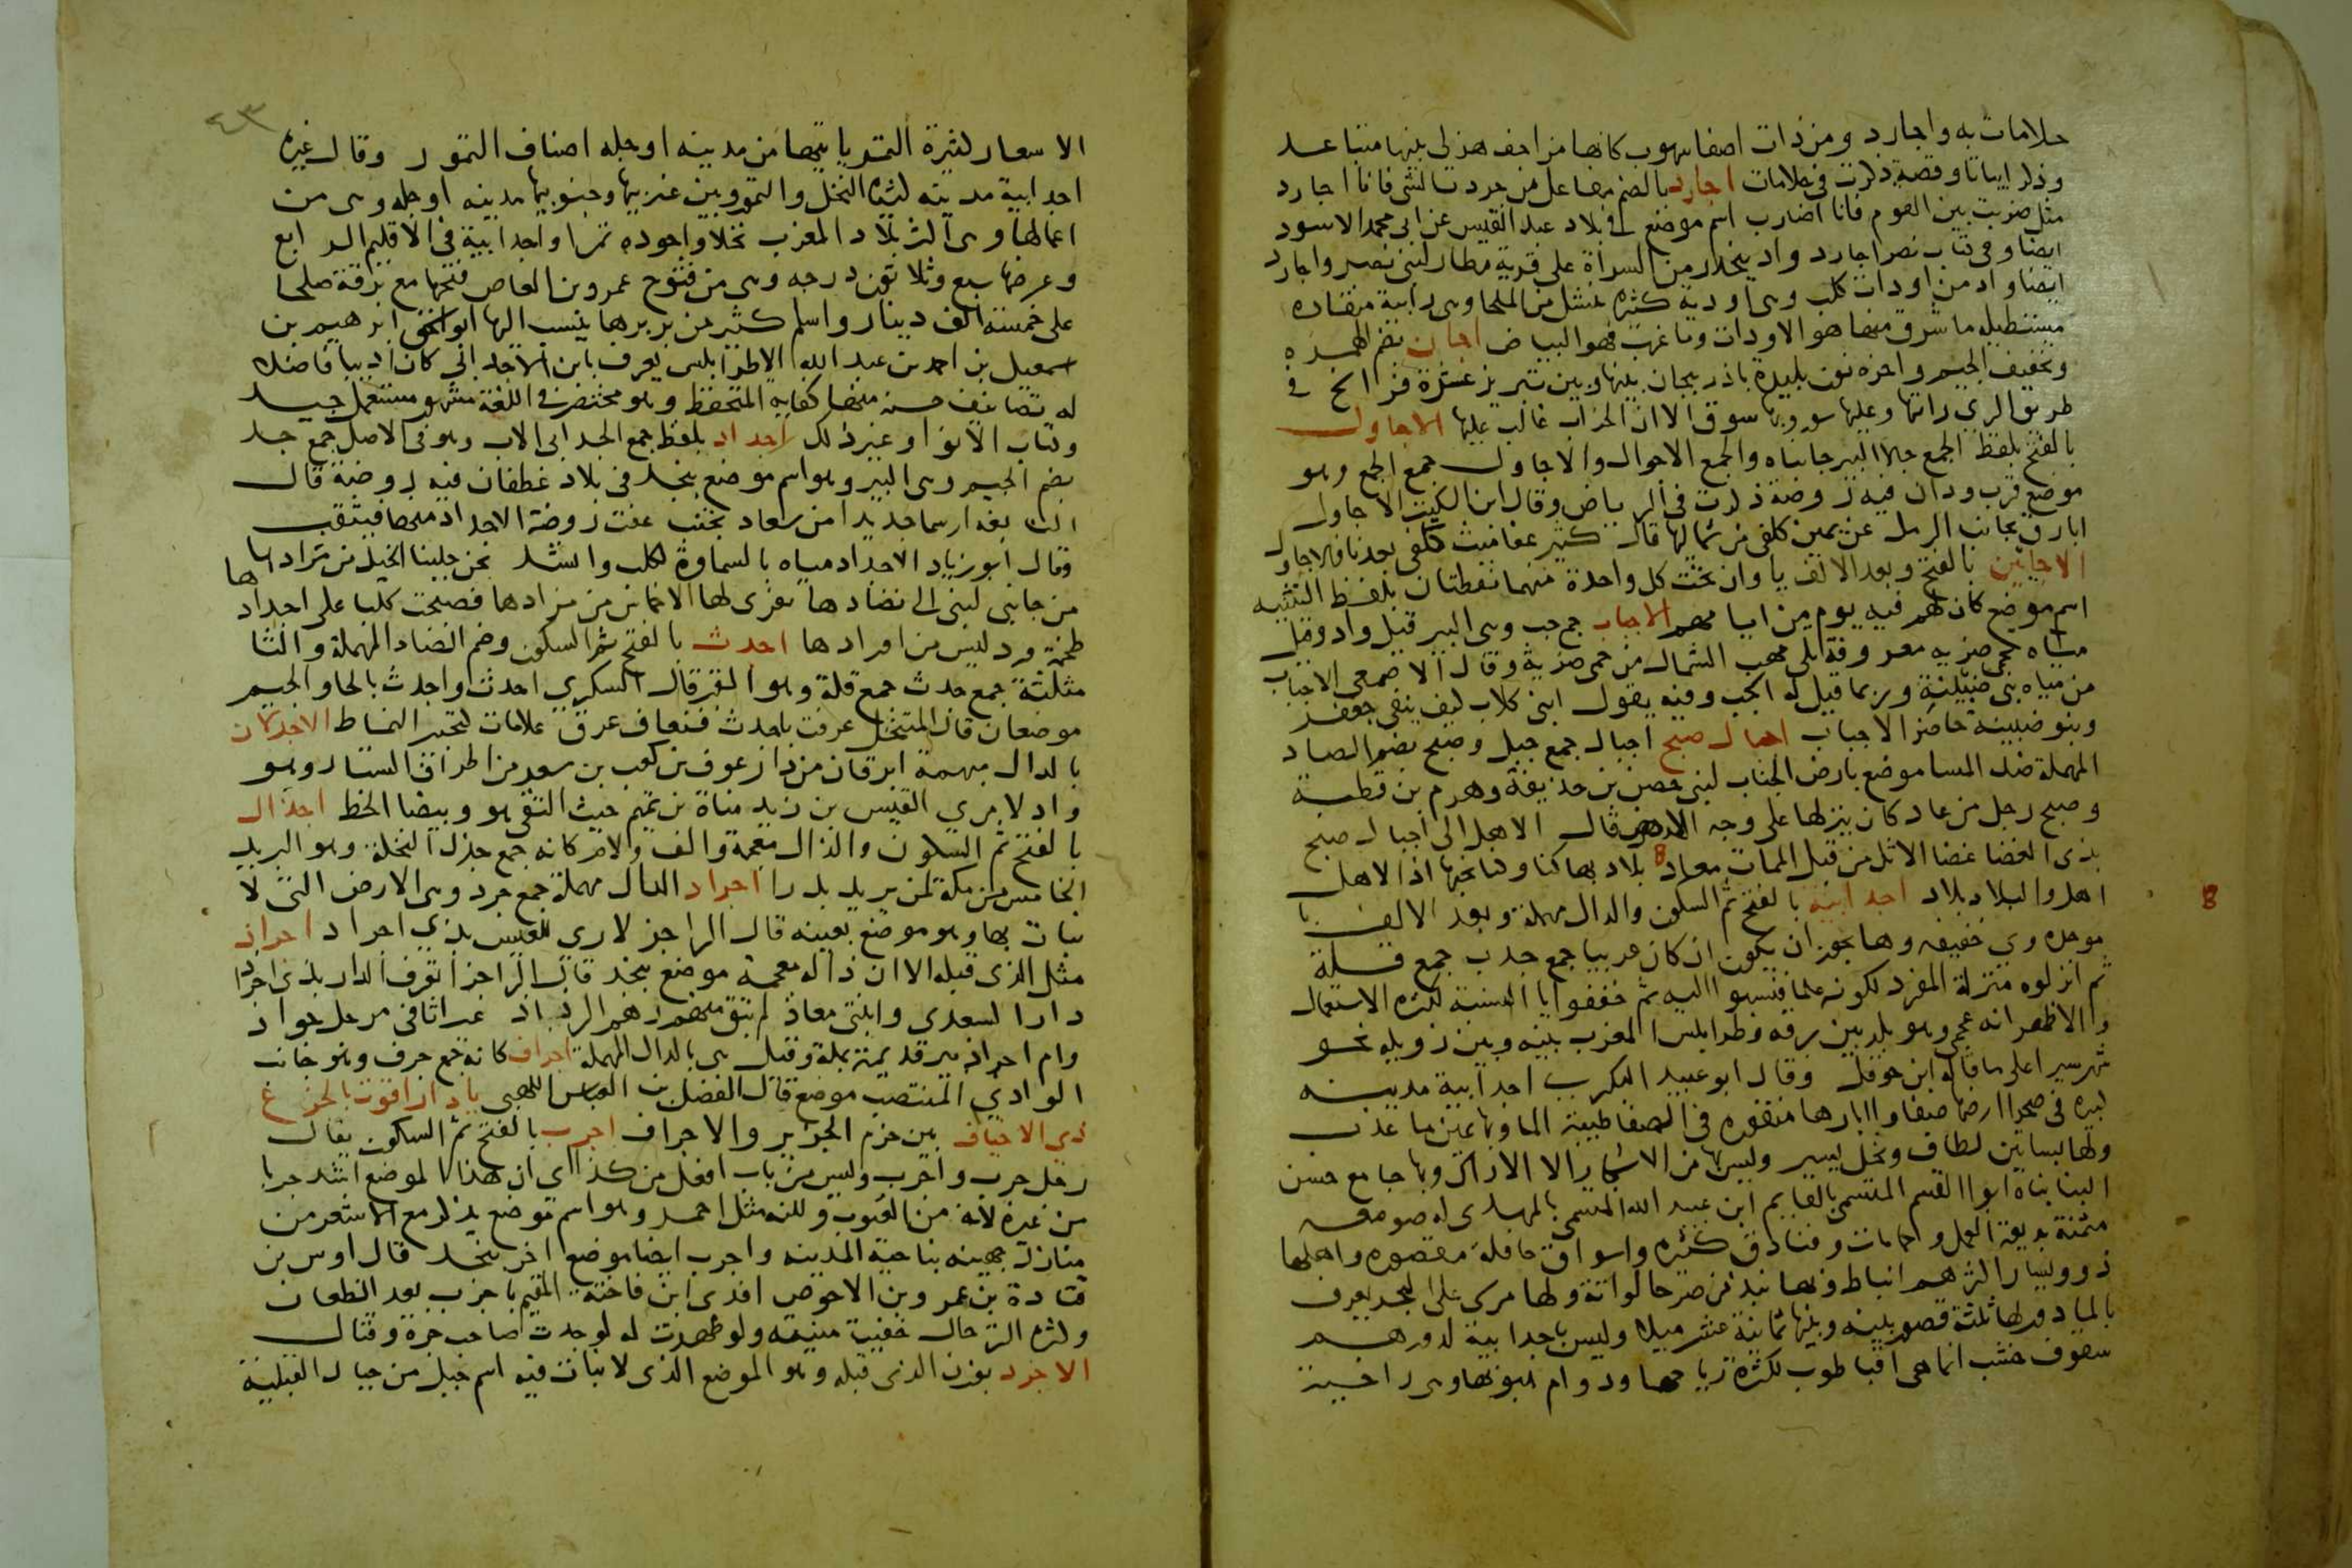 حلامات به واجارد ومن ذات اصفا سهوب كانها مزاحف هزلى بينها متباعد
وذكر ابياتا وقصة ذكرت فى حلامات اجارد بالضم مفاعل من جردت الشى فانا اجارد
مثل ضربت بين القوم فانا اضارب اسم موضع فى بلاد عبد القيس عن ابى محمد الاسود
ايضا وفى كتاب نصر اجارد واد ينحدر من السراة على قرية مطار لبنى نصر واجارد
ايضا واد من اودات كلب وهى اودية كثيرة تنشل من الملحا وهى رابية منقاده
مستطيله ما شرق منها هو الاودات وما غرب فهو البياض اجان بضم الهمزه
وتخفيف الجيم واخره نون بليدة باذربيجان بينها وبين تبريز عشرة فراسخ فى
طريق الرى رايتها وعليها سور وبها سوق الا ان الخراب غالب عليها الاجاول
بالفتح بلفظ الجمع جالا البير جانباه والجمع الاجوال والاجاول جمع الجمع وهو
موضع قرب ودان فيه روضة ذكرت فى الرياض وقال ابن السكيت الاجاول
ابارق بجانب الرمل عن يمين كلفى من شمالها قال كثير عفا ميث كلفى بعدنا فالاجاول
الاجايين بالفتح وبعد الالف يا وان تحت كل واحدة منهما نقطتان بلفظ التثنيه
اسم موضع كان لهم فيه يوم من ايامهم الاجباب جمع جب وهى البير قيل واد وقيل
مياه بحمى ضريه معروفة تلى مهب الشمال من حمى ضرية وقال الاصمعى الاجباب
من مياه بنى ضبينة وربما قيل له الجب وفيه يقول ابنى كلاب كيف ينفى جعفر
وبنو ضبينة حاضر الاجباب اجبال صبح اجبال جمع جبل وصبح بضم الصاد
المهملة ضد المسا موضع بارض الجناب لبنى حصن بن حذيفة وهرم بن قطبة
وصبح رجل من عاد كان ينزلها على وجه الدهر قال الا هل الى اجبال صبح
بذى الغضا غضا الاثل من قبل الممات معاد 8 بلاد بها كنا وكنا نحبها اذ الاهل
اهل والبلاد بلاد اجدابية بالفتح ثم السكون والدال مهملة وبعد الالف با
موحده وى خفيفه وها يجوز ان يكون ان كان عربيا جمع جدب جمع قلة
ثم انزلوه منزلة المفرد لكونه علما فنسبوا اليه ثم خففوا يا النسبة لكثرة الاستعمال
والاظهر انه عجمى وهو بلد بين برقه وطرابلس المغرب بينه وبين زويله نحو
شهر سيرا على ما قاله ابن حوقل وقال ابو عبيد البكرى اجدابية مدينه
كبيره فى صحرا ارضها صفا وابارها منقوره فى الصفا طيبة الما وبها عين ما عذب
ولها بساتين لطاف ونخل يسير وليس بها من الاشجار الا الاراك وبها جامع حسن
البنا بناه ابو القسم المتسمى بالقايم ابن عبيد الله المتسمى بالمهدى له صومعه
مثمنة بديعة العمل وحمامات وفنادق كثيره واسواق حافلة مقصوده واهلها
ذوو يسار اكثرهم انباط وبها نبذ من صرحا لواتة ولها مرسى على البحر يعرف
بالمادور لها ثلثة قصور بينه وبينها ثمانية عشر ميلا وليس باجدابية لدورهم
سقوف خشب انما هى اقبا طوب لكثرة رياحها ودوام هبوبها وهى راخية
8
٤٣
الاسعار كثيرة التمر ياتيها من مدينه اوجله اصناف التمور وقال غيره
اجدابية مدينه كثيرة النخل والتمر وبين غربيها وجنوبيها مدينه اوجله وهى من
اعمالها وهى اكثر بلاد المغرب نخلا واجوده تمرا واجدابية فى الاقليم الرابع
وعرضها سبع وثلاثون درجه وهى من فتوح عمرو بن العاص فتحها مع برقة صلحا
على خمسة الف دينار واسلم كثير من بربرها ينسب اليها ابو اسحق ابرهيم بن
سمعيل بن احمد بن عبد الله الاطرابلسى يعرف بابن الاجدابى كان اديبا فاضلا
له تصانيف حسنه منها كفاية المتحفظ وهو مختصر فى اللغة مشهور مستعمل جيد
وكتاب الانوا وغير ذلك اجداد بلفظ جمع الجد ابى الاب وهو فى الاصل جمع جد
بضم الجيم وهى البير وهو اسم موضع بنجد فى بلاد غطفان فيه روضة قال
النابغه ارسما جديدا من سعاد تجنب عفت روضة الاجداد منها فيثقب
وقال ابو زياد الاجداد مياه بالسماوة لكلب وانشد نحن جلبنا الخيل من مرادها
من جانبى لبنى الى نضادها نفرى لها الاخماس من مزادها فصبحت كلبا على اجدادها
طحمة ورد ليس من اورادها احدث بالفتح ثم السكون وضم الضاد المهملة والثا
مثلثة جمع حدث جمع قلة وهو القبر قال السكرى احدث واجدث بالحا والجيم
موضعان قال المتنخل عرفت باجدث فنعاف عرق علامات كتحبير النماط الاجدلان
بالدال مبهمة ابرقان من ديار عوف بن كعب بن سعد من اطراف الستار وهو
واد لامرى القيس بن زيد مناة بن تميم حيث التقى هو وبيضا الخط اجذال
بالفتح ثم السكون والذال معجمة والف ولام كانه جمع جذل النخلة وهو البريد
الخامس من مكة لمن يريد بدرا اجراد الدال مهملة جمع جرد وهى الارض التى لا
نبات بها وهو موضع بعينه قال الراجز لا رى للعيس بذى اجراد اجراذ
مثل الذى قبله الا ان ذاله معجمة موضع بنجد قال الراجز اتعرف الدار بذى اجراذ
دارا لسعدى وابنتى معاذ لم تبق منهم رهم الرذاذ غير اثافى مرجل جواذ
وام اجراذ بير قديمة بمكة وقيل هى بالدال المهملة اجراف كانه جمع جرف وهو جانب
الوادى المنتصب موضع قال الفضل بن العباس اللهبى يا دار اقوت بالجزع
ذى الاخياف بين حزم الجزير والاجراف اجرب بالفتح ثم السكون يقال
رجل جرب واجرب وليس من باب افعل من كذا اى ان هذا الموضع اشد جربا
من غيره لانه من العيوب ولكنه مثل احمد وهو اسم موضع يذكر مع الاشعر من
منازل جهينه بناحية المدينه واجرب ايضا موضع اخر بنجد قال اوس بن
قتادة بن عمرو بن الاحوص افدى ابن فاختة المقيم باجرب بعد الظعان
وكثره الترحال خفيت منيته ولو ظهرت له لوجدت صاحب جرة وقتال
الاجرد بوزن الذى قبله وهو الموضع الذى لا نبات فيه اسم جبل من جبال القبلية